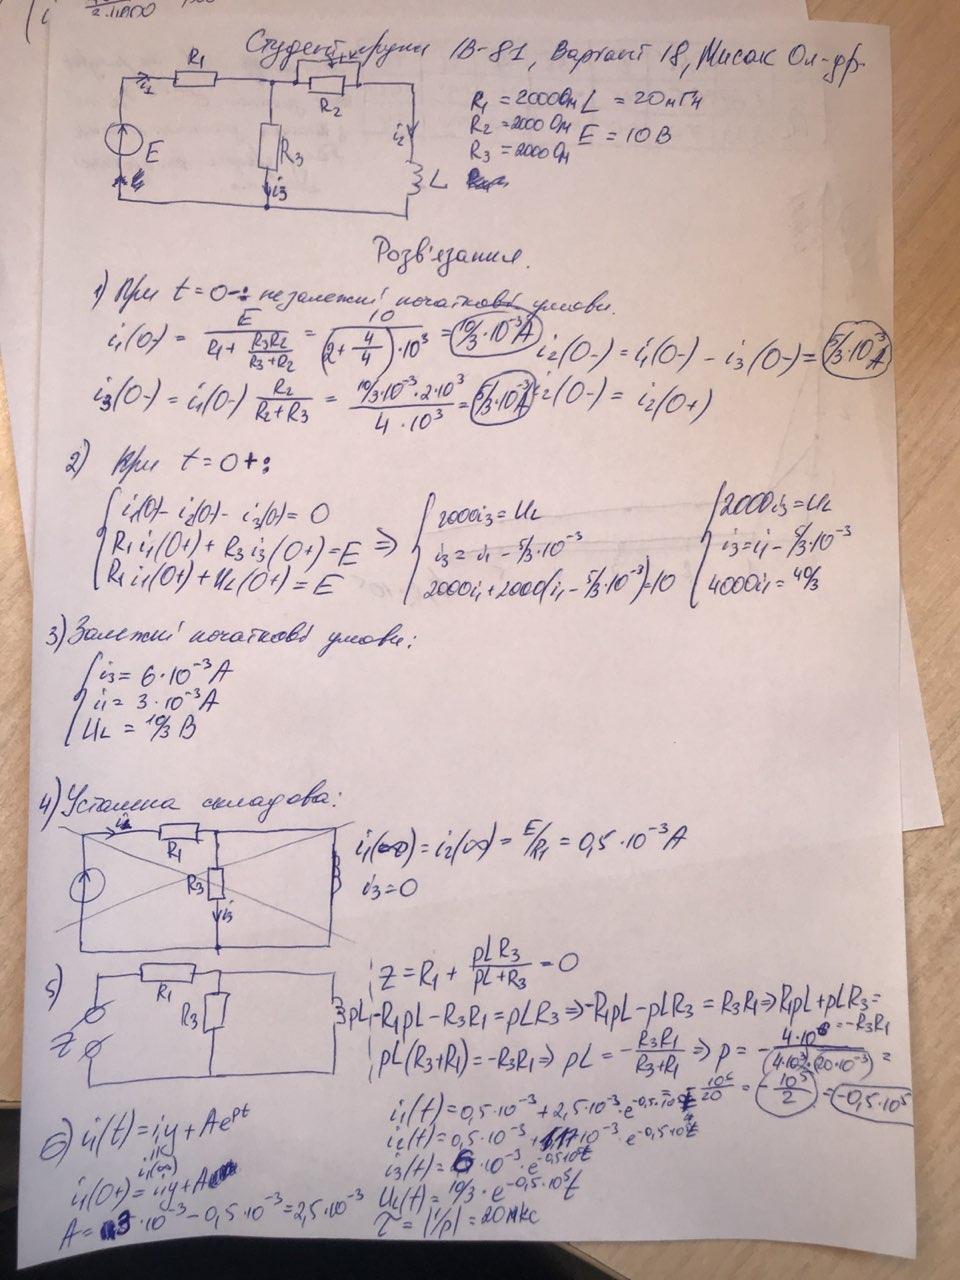 2·11000
Студент групи ІВ-81, Варіант 18, Мисак Ол-др.
R₁
i₁
R₂
E
R₃
i₂
i₃
L
R₁ = 2000Ом L = 20мГн
R₂ = 2000 Ом E = 10 В
R₃ = 2000 Ом
Розв'язання.
1) При t = 0-: незалежні початкові умови.
i₁(0-) = E/(R₁ + R₃R₂/(R₃+R₂)) = 10/((2 + 4/4)·10³) = 10/3·10⁻³A i₂(0-) = i₁(0-) - i₃(0-) = 5/3·10⁻³A
i₃(0-) = i₁(0-) R₂/(R₂+R₃) = (10/3·10⁻³·2·10³)/(4·10³) = 5/3·10⁻³A i₂(0-) = i₂(0+)
2) При t = 0+:
i₁(0) - i₂(0) - i₃(0) = 0
R₁i₁(0+) + R₃i₃(0+) = E ⇒
R₁i₁(0+) + U_L(0+) = E
2000i₃ = U_L
i₃ = i₁ - 5/3·10⁻³
2000i₁ + 2000(i₁ - 5/3·10⁻³) = 10
2000i₃ = U_L
i₃ = i₁ - 5/3·10⁻³
4000i₁ = 40/3
3) Залежні початкові умови:
i₃ = 6·10⁻³A
i₁ = 3·10⁻³A
U_L = 10/3 В
4) Усталена складова:
R₁
R₃
i₃
i₁(∞) = i₂(∞) = E/R₁ = 0,5·10⁻³A
i₃ = 0
5)
R₁
R₃
pL
Z
Z = R₁ + pLR₃/(pL+R₃) = 0
-R₁pL - R₃R₁ = pLR₃ ⇒ -R₁pL - pLR₃ = R₃R₁ ⇒ R₁pL + pLR₃ = -R₃R₁
pL(R₃+R₁) = -R₃R₁ ⇒ pL = -R₃R₁/(R₃+R₁) ⇒ p = -4·10⁶/((4·10³)·(20·10⁻³)) =
= -10⁶/20 = -10⁵/2 = -0,5·10⁵
6) i₁(t) = iy + Ae^pt
i₁(∞)
i₁(0+) = iy + A
A = 3·10⁻³ - 0,5·10⁻³ = 2,5·10⁻³
i₁(t) = 0,5·10⁻³ + 2,5·10⁻³·e^-0,5·10⁵t
i₂(t) = 0,5·10⁻³ + 1,17·10⁻³·e^-0,5·10⁵t
i₃(t) = 6·10⁻³·e^-0,5·10⁵t
U_L(t) = 10/3·e^-0,5·10⁵t
τ = |1/p| = 20мкс